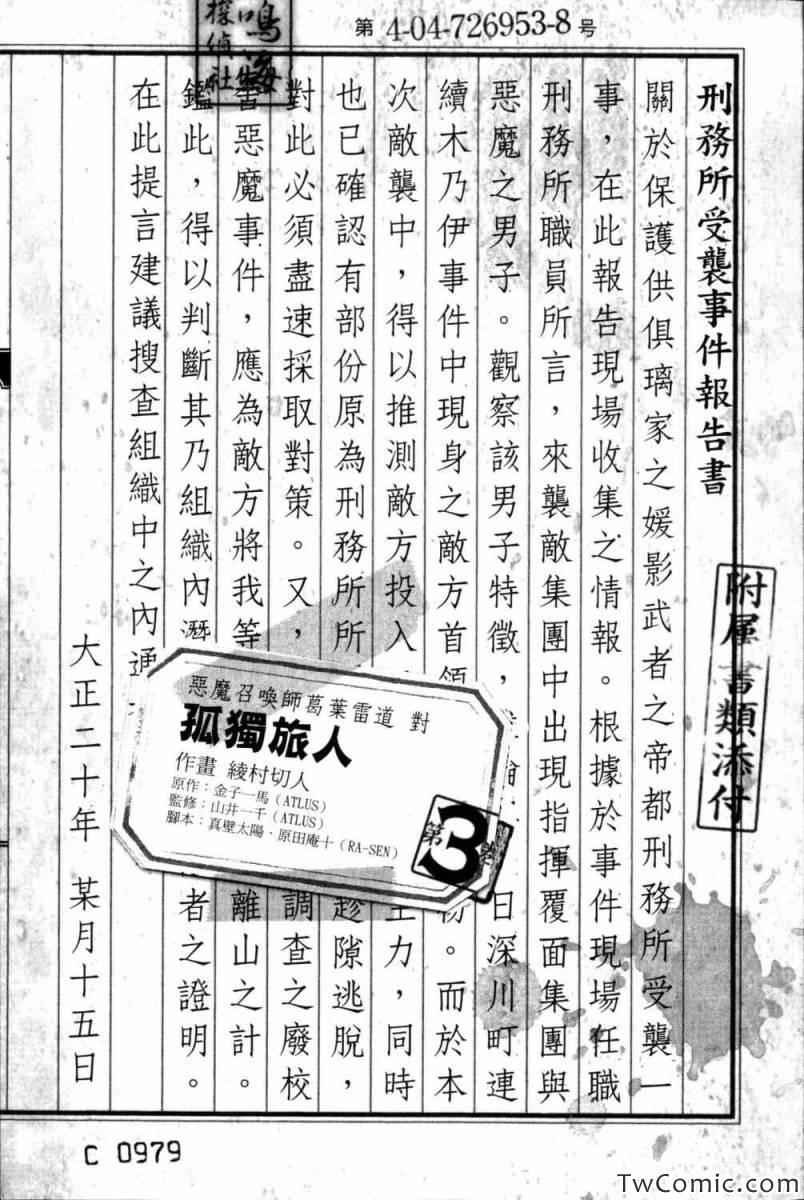 第 4-04-726953-8 号
鳴海
探偵社
刑務所受襲事件報告書
附屬書類添付
關於保護供俱璃家之媛影武者之帝都刑務所受襲一
事，在此報告現場收集之情報。根據於事件現場任職
刑務所職員所言，來襲敵集團中出現指揮覆面集團與
惡魔之男子。觀察該男子特徵，日深川町連
續木乃伊事件中現身之敵方首領物。而於本
次敵襲中，得以推測敵方投入主力，同時
也已確認有部份原為刑務所所趁隙逃脫，
對此必須盡速採取對策。又，調查之廢校
書惡魔事件，應為敵方將我等離山之計。
鑑此，得以判斷其乃組織內潛者之證明。
在此提言建議搜查組織中之內通
大正二十年 某月十五日
惡魔召喚師葛葉雷道 對
孤獨旅人
作畫 綾村切人
原作：金子一馬（ATLUS）
監修：山井一千（ATLUS）
腳本：真壁太陽・原田庵十（RA-SEN）
第3卷
C 0979
TwComic.com